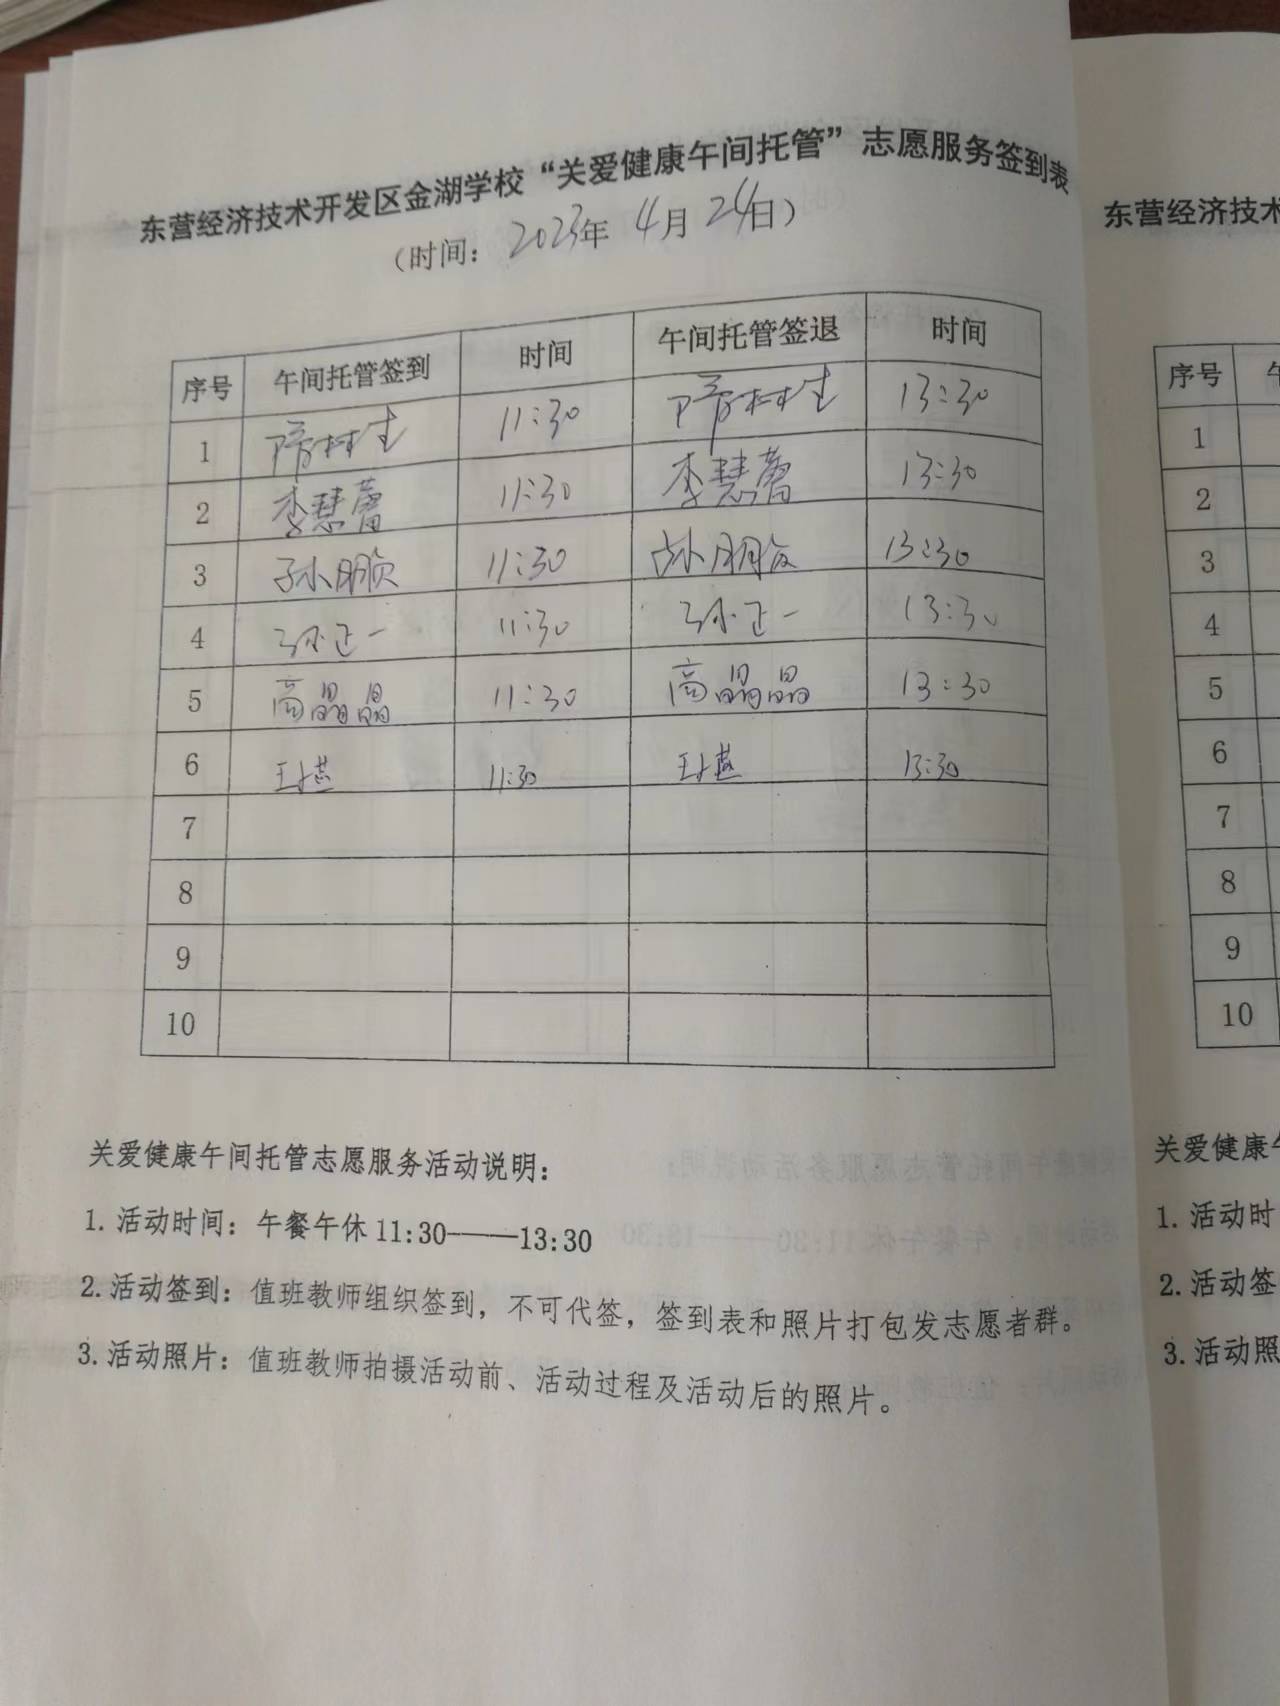 东营经济技术开发区金湖学校“关爱健康午间托管”志愿服务签到表
（时间： 2023年 4月 24日）
序号 午间托管签到 时间 午间托管签退 时间
1 11:30 13:30
2 李慧蕾 11:30 李慧蕾 13:30
3 11:30 13:30
4 孙正一 11:30 孙正一 13:30
5 高晶晶 11:30 高晶晶 13:30
6 11:30 13:30
7
8
9
10
关爱健康午间托管志愿服务活动说明：
1. 活动时间：午餐午休 11:30——13:30
2. 活动签到：值班教师组织签到，不可代签，签到表和照片打包发志愿者群。
3. 活动照片：值班教师拍摄活动前、活动过程及活动后的照片。
东营经济技术
序号
1
2
3
4
5
6
7
8
9
10
关爱健康
1. 活动时
2. 活动签
3. 活动照